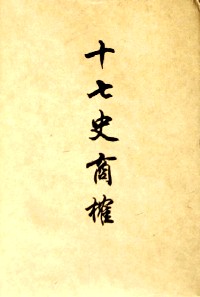 十七史商榷